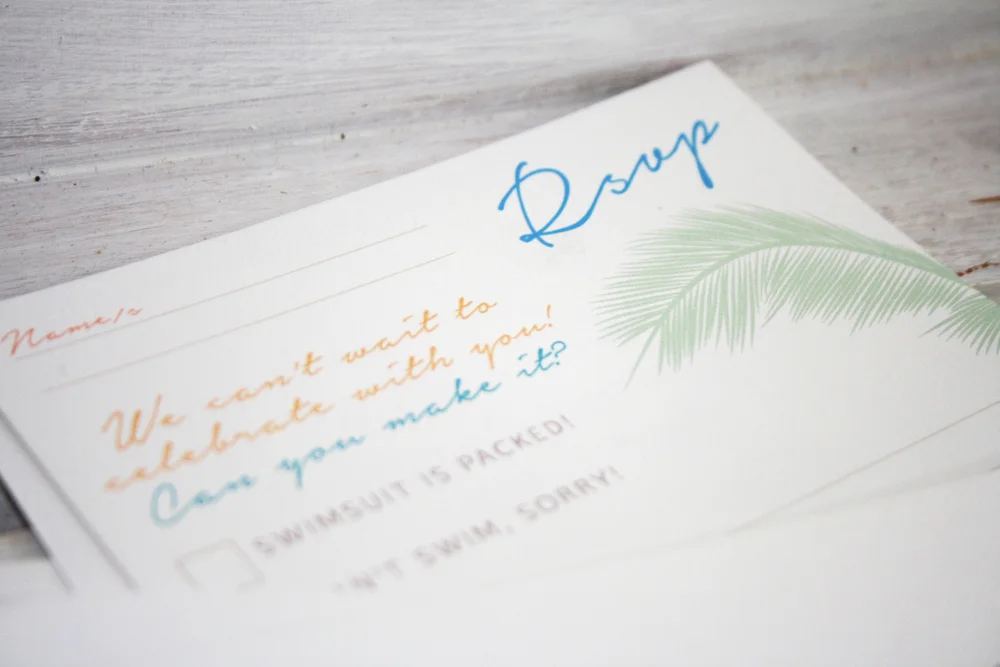 Rsvp
Name/s
We can't wait to
celebrate with you!
Can you make it?
SWIMSUIT IS PACKED!
SWIM, SORRY!